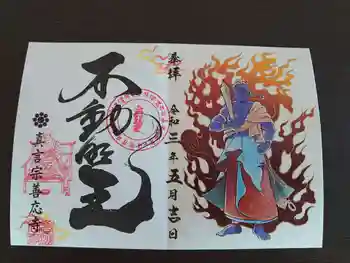 奉拝
令和三年五月吉日
不動明王
真言宗善応寺